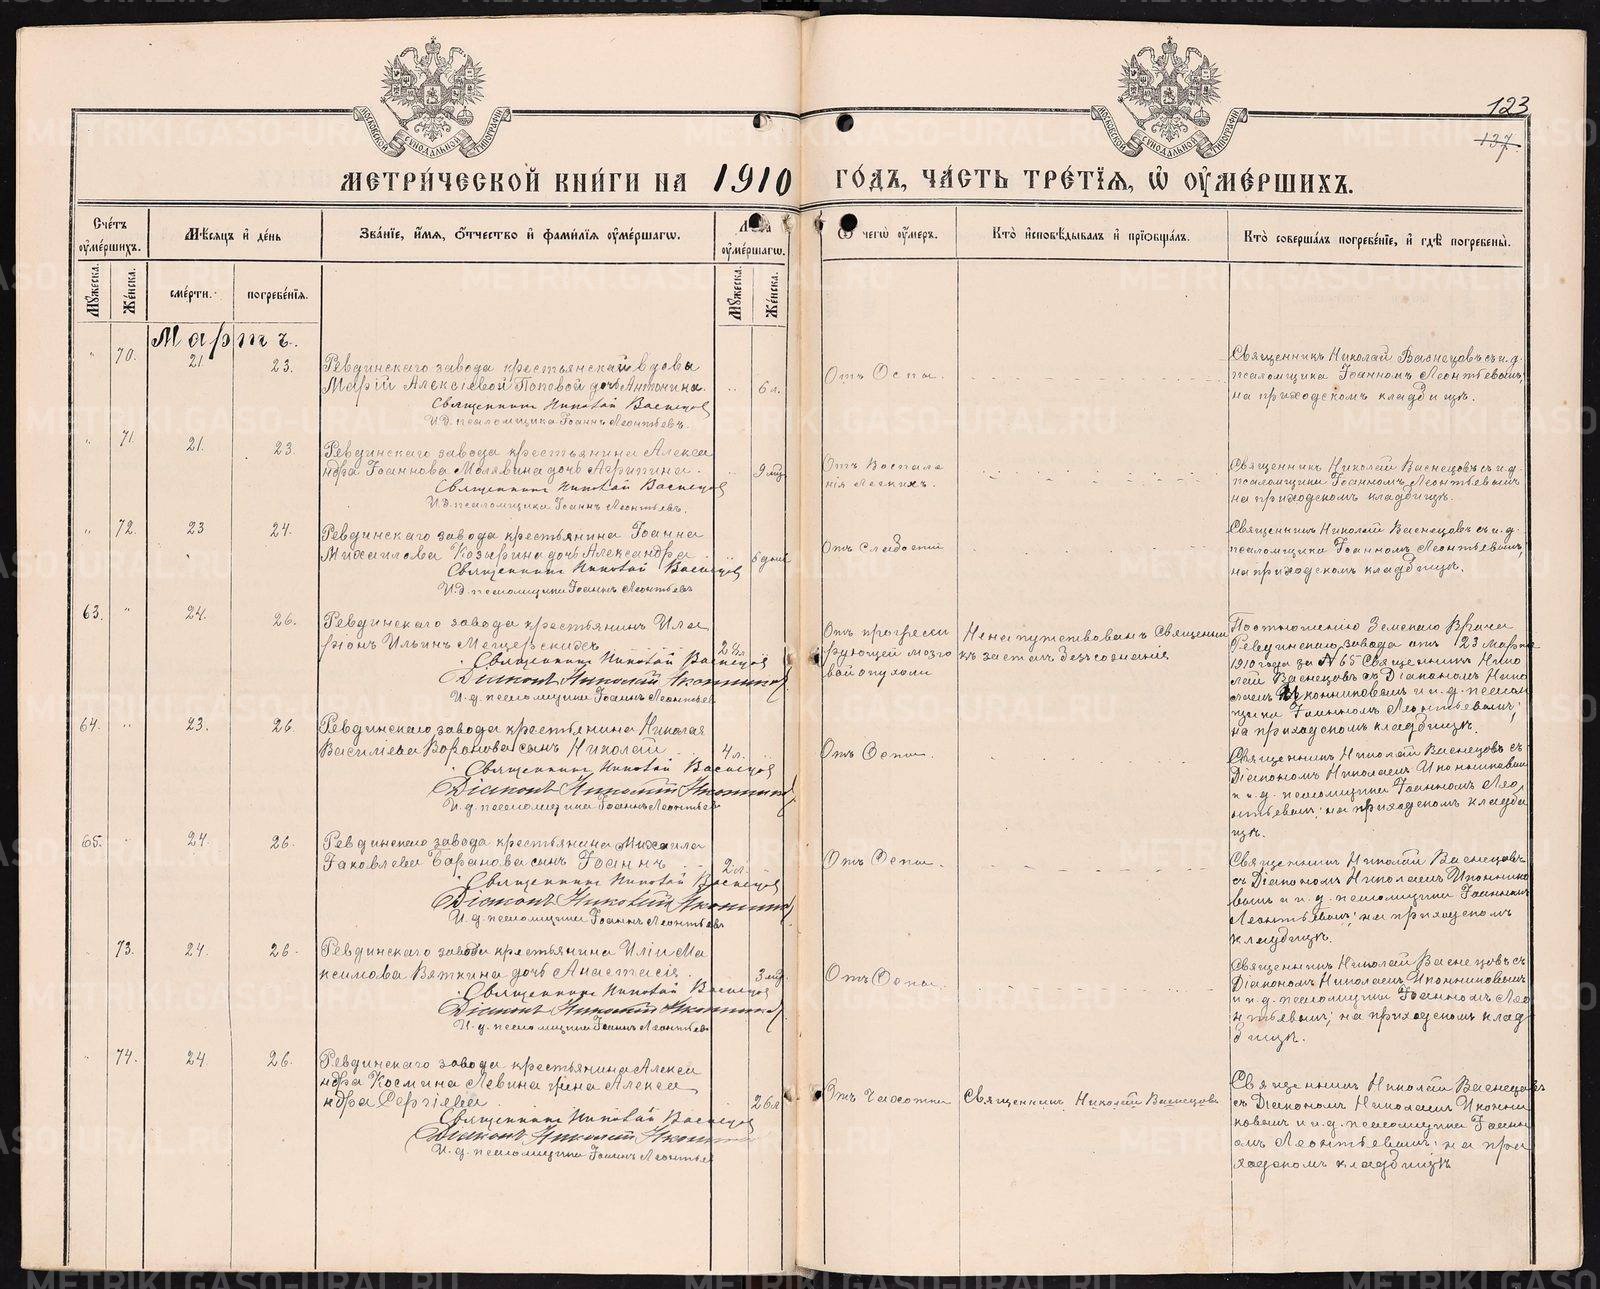 123
137
МОСКОВСКОЙ СѴНОДАЛЬНОЙ ТИПОГРАФІИ
МОСКОВСКОЙ СѴНОДАЛЬНОЙ ТИПОГРАФІИ
МЕТРИ́ЧЕСКОЙ КНИ́ГИ НА 1910 ГО́ДЪ, ЧА́СТЬ ТРЕ́ТІЯ, Ѽ ОУМЕ́РШИХЪ.
Сче́тъ оуме́ршихъ.
Мѣ́сяцъ и де́нь
Зва́ніе, и́мя, о́тчество и фами́лія оуме́ршагѡ.
Лѣта оуме́ршагѡ.
Ѿ чегѡ̀ оу́меръ.
Кто̀ исповѣ́дывалъ и пріобща́лъ.
Кто̀ соверша́лъ погребе́ніе, и гдѣ̀ погребены̀.
Мꙋ́жеска.
Же́нска.
сме́рти.
погребе́нія.
Мꙋ́жеска.
Же́нска.
Мартъ.
" 70. 21 23. Ревдинскаго завода крестьянской вдовы
Маріи Алексіевой Поповой дочь Антонина. 6 л. Отъ Оспы.
Священникъ Николай Васнецовъ
И.д. псаломщика Іоаннъ Леонтьевъ.
Священникъ Николай Васнецовъ съ и.д.
псаломщика Іоанномъ Леонтьевымъ;
на приходскомъ кладбищѣ.
" 71. 21. 23. Ревдинскаго завода крестьянина Алекса
ндра Іоаннова Молявина дочь Агрипина. 9 мц. Отъ Воспале
нія легкихъ.
Священникъ Николай Васнецовъ
И.д. псаломщика Іоаннъ Леонтьевъ.
Священникъ Николай Васнецовъ съ и.д.
псаломщика Іоанномъ Леонтьевымъ
на приходскомъ кладбищѣ.
" 72. 23 24. Ревдинскаго завода крестьянина Іоанна
Михаилова Козырина дочь Александра. 6 дней Отъ слабости
Священникъ Николай Васнецовъ
И.д. псаломщика Іоаннъ Леонтьевъ
Священникъ Николай Васнецовъ съ и.д.
псаломщика Іоанномъ Леонтьевымъ;
на приходскомъ кладбищѣ.
63. " 24. 26. Ревдинскаго завода крестьянинъ Ила
ріонъ Ильинъ Мещерскихъ 28 л.
Священникъ Николай Васнецовъ
Діаконъ Николай Иконниковъ
И.д. псаломщика Іоаннъ Леонтьевъ
Отъ прогресси
рующей мозго
вой опухоли
Не напутствованъ Священни
къ засталъ безъ сознанія
По отношенію Земскаго Врача
Ревдинскаго завода отъ 23 марта
1910 года за № 65 Священникъ Нико
лай Васнецовъ съ Діакономъ Нико
лаемъ Иконниковымъ и и.д. псалом
щика Іоанномъ Леонтьевымъ;
на приходскомъ кладбищѣ.
64. " 23. 26. Ревдинскаго завода крестьянина Николая
Васильева Воронова сынъ Николай 4 л. Отъ Оспы.
Священникъ Николай Васнецовъ
Діаконъ Николай Иконниковъ
И.д. псаломщика Іоаннъ Леонтьевъ
Священникъ Николай Васнецовъ съ
Діакономъ Николаемъ Иконниковымъ
и и.д. псаломщика Іоанномъ Лео
нтьевымъ; на приходскомъ кладби
щѣ.
65. 24. 26. Ревдинскаго завода крестьянина Михаила
Іаковлева Баранова сынъ Іоаннъ 2 л. Отъ Оспы.
Священникъ Николай Васнецовъ
Діаконъ Николай Иконниковъ
И.д. псаломщика Іоаннъ Леонтьевъ
Священникъ Николай Васнецовъ
съ Діакономъ Николаемъ Иконнико
вымъ и и.д. псаломщика Іоанномъ
Леонтьевымъ; на приходскомъ
кладбищѣ.
73. 24 26. Ревдинскаго завода крестьянина Иліи Ма
ксимова Вяткина дочь Анастасія. 3 мц. Отъ Оспы.
Священникъ Николай Васнецовъ
Діаконъ Николай Иконниковъ
И.д. псаломщика Іоаннъ Леонтьевъ
Священникъ Николай Васнецовъ съ
Діакономъ Николаемъ Иконниковымъ
и и.д. псаломщика Іоанномъ Лео
нтьевымъ; на приходскомъ клад
бищѣ.
" 74. 24 26. Ревдинскаго завода крестьянина Алекса
ндра Космина Левина жена Алекса
ндра Сергіева 26 л. Отъ Чахотки Священникъ Николай Васнецовъ
Священникъ Николай Васнецовъ
Діаконъ Николай Иконниковъ
И.д. псаломщика Іоаннъ Леонтьевъ
Священникъ Николай Васнецовъ
съ Діакономъ Николаемъ Иконни
ковымъ и и.д. псаломщика Іоанн
омъ Леонтьевымъ; на при
ходскомъ кладбищѣ
METRIKI.GASO-URAL.RU